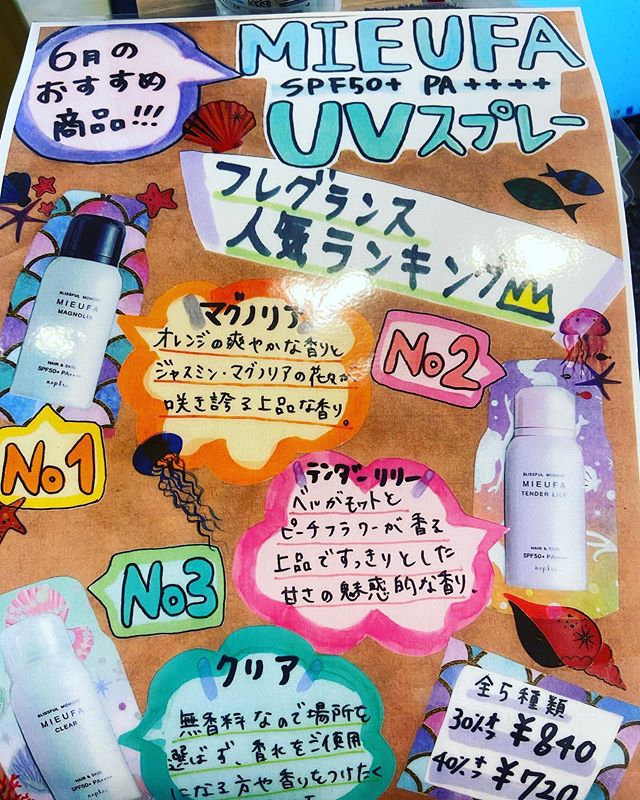 6月の
おすすめ
商品!!!
MIEUFA
SPF50+ PA++++
UVスプレー
フレグランス
人気ランキング
No1
BLISSFUL MOMENT
MIEUFA
MAGNOLIA
HAIR & SKIN
SPF50+ PA++++
napla
マグノリア
オレンジの爽やかな香りと
ジャスミン・マグノリアの花々が
咲き誇る上品な香り。
No2
BLISSFUL MOMENT
MIEUFA
TENDER LILY
HAIR & SKIN
SPF50+ PA++++
napla
テンダーリリー
ベルガモットと
ピーチフラワーが香る
上品ですっきりとした
甘さの魅惑的な香り。
No3
BLISSFUL MOMENT
MIEUFA
CLEAR
HAIR & SKIN
SPF50+ PA++++
napla
クリア
無香料なので場所を
選ばず、香水をご使用
になる方や香りをつけたく
全5種類
30%オフ ¥840
40%オフ ¥720